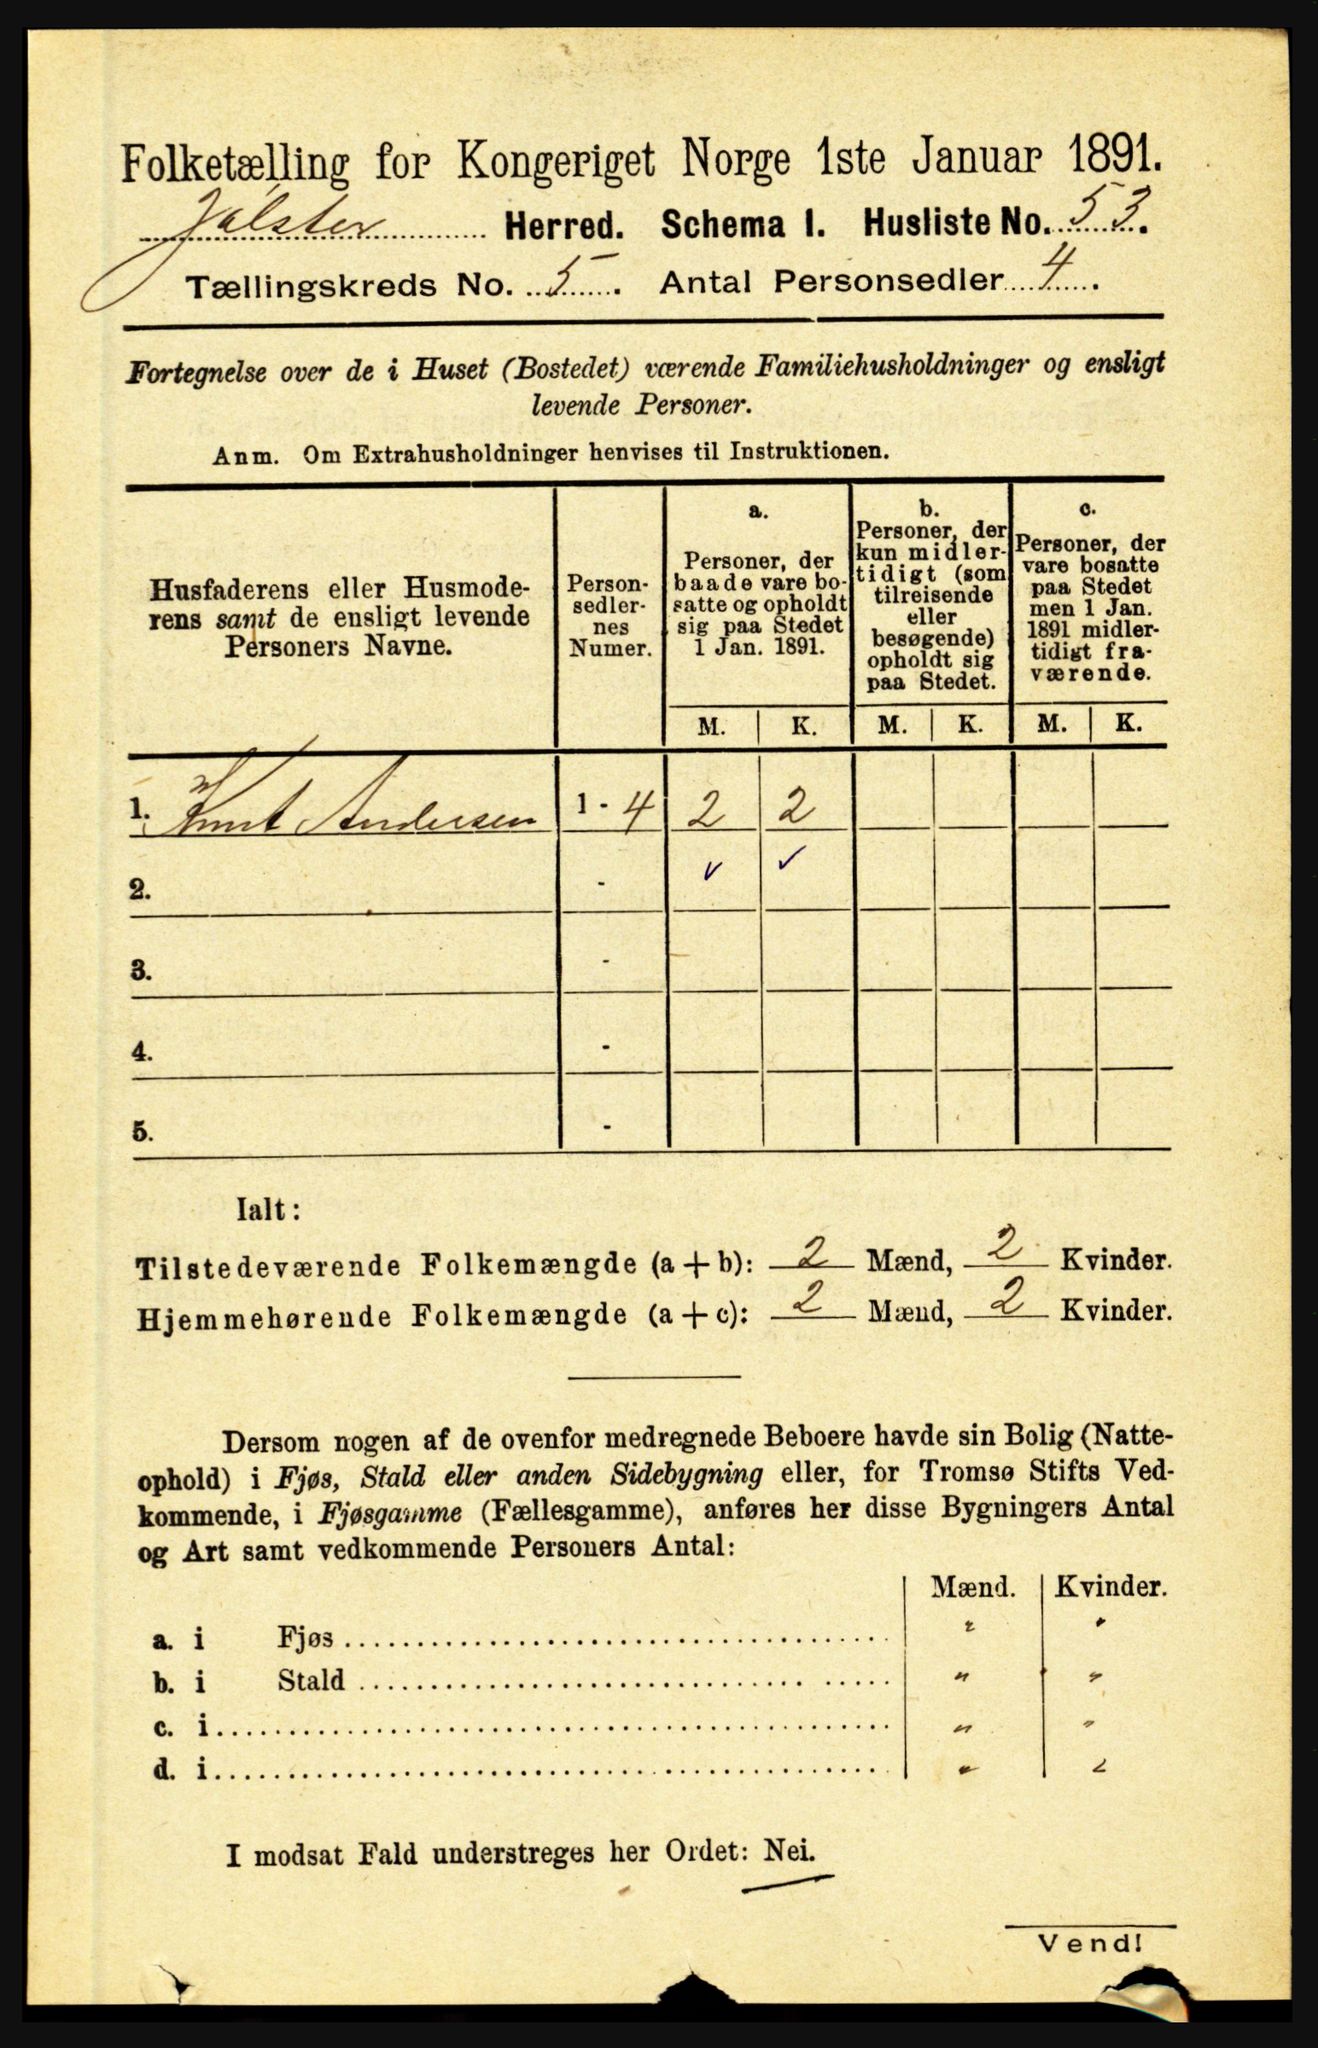 Folketælling for Kongeriget Norge 1ste Januar 1891.
Jølster Herred. Schema I. Husliste No. 53.
Tællingskreds No. 5. Antal Personsedler 4.
Fortegnelse over de i Huset (Bostedet) værende Familiehusholdninger og ensligt
levende Personer.
Anm. Om Extrahusholdninger henvises til Instruktionen.
Husfaderens eller Husmode-
rens samt de ensligt levende
Personers Navne.
Person-
sedler-
nes
Numer.
a.
Personer, der
baade vare bo-
satte og opholdt
sig paa Stedet
1 Jan. 1891.
b.
Personer, der
kun midler-
tidigt (som
tilreisende
eller
besøgende)
opholdt sig
paa Stedet.
c.
Personer, der
vare bosatte
paa Stedet
men 1 Jan.
1891 midler-
tidigt fra-
værende.
M. K. M. K. M. K.
1. Knut Andersen 1 - 4 2 2
2. - ✓ ✓
3. -
4. -
5. -
Ialt:
Tilstedeværende Folkemængde (a + b): 2 Mænd, 2 Kvinder.
Hjemmehørende Folkemængde (a + c): 2 Mænd, 2 Kvinder.
Dersom nogen af de ovenfor medregnede Beboere havde sin Bolig (Natte-
ophold) i Fjøs, Stald eller anden Sidebygning eller, for Tromsø Stifts Ved-
kommende, i Fjøsgamme (Fællesgamme), anføres her disse Bygningers Antal
og Art samt vedkommende Personers Antal:
Mænd. Kvinder.
a. i Fjøs " "
b. i Stald " "
c. i " "
d. i " "
I modsat Fald understreges her Ordet: Nei.
Vend!